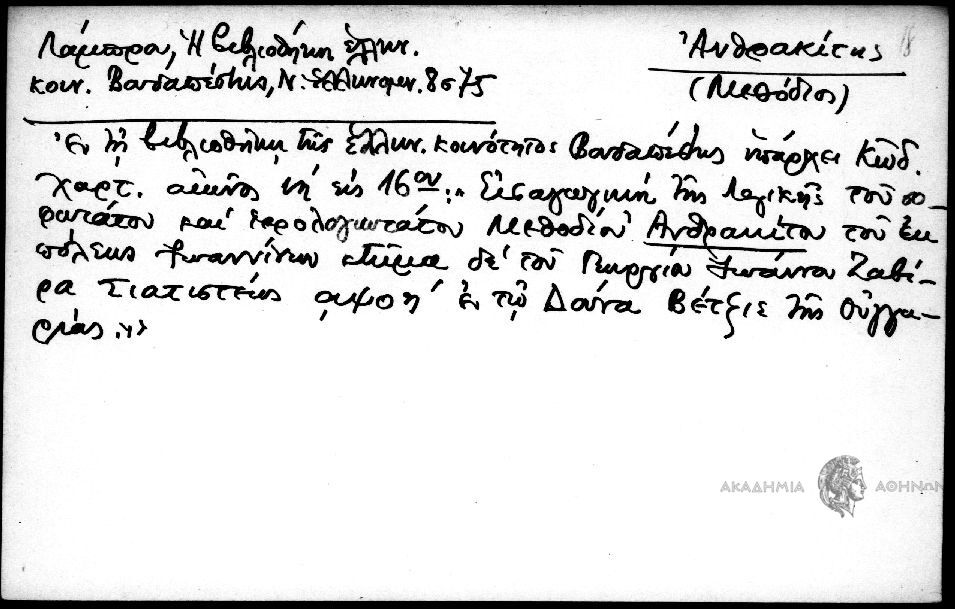 Λάμπρου, Ἡ βιβλιοθήκη ἑλλην.
κοιν. Βουδαπέστης, Ν. Ἑλληνομν. 8 σ 75
Ἀνθρακίτης
(Μεθόδιος)
Ἐν τῇ βιβλιοθήκῃ τῆς ἑλλην. κοινότητος Βουδαπέστης ὑπάρχει Κώδ.
χαρτ. αἰῶνος ιή εἰς 16ον: „ Εἰσαγωγικὴ τῆς λογικῆς τοῦ σο-
φωτάτου καὶ ἱερολογιωτάτου Μεθοδίου Ἀνθρακίτου τοῦ ἐκ
πόλεως Ἰωαννίνων κτῆμα δὲ τοῦ Γεωργίου Ἰωάννου Ζαβί-
ρα Σιατιστέως αψοη' ἐν τῷ Δούνα Βέτζιε τῆς Οὐγγα-
ρίας.
ΑΚΑΔΗΜΙΑ ΑΘΗΝΩΝ